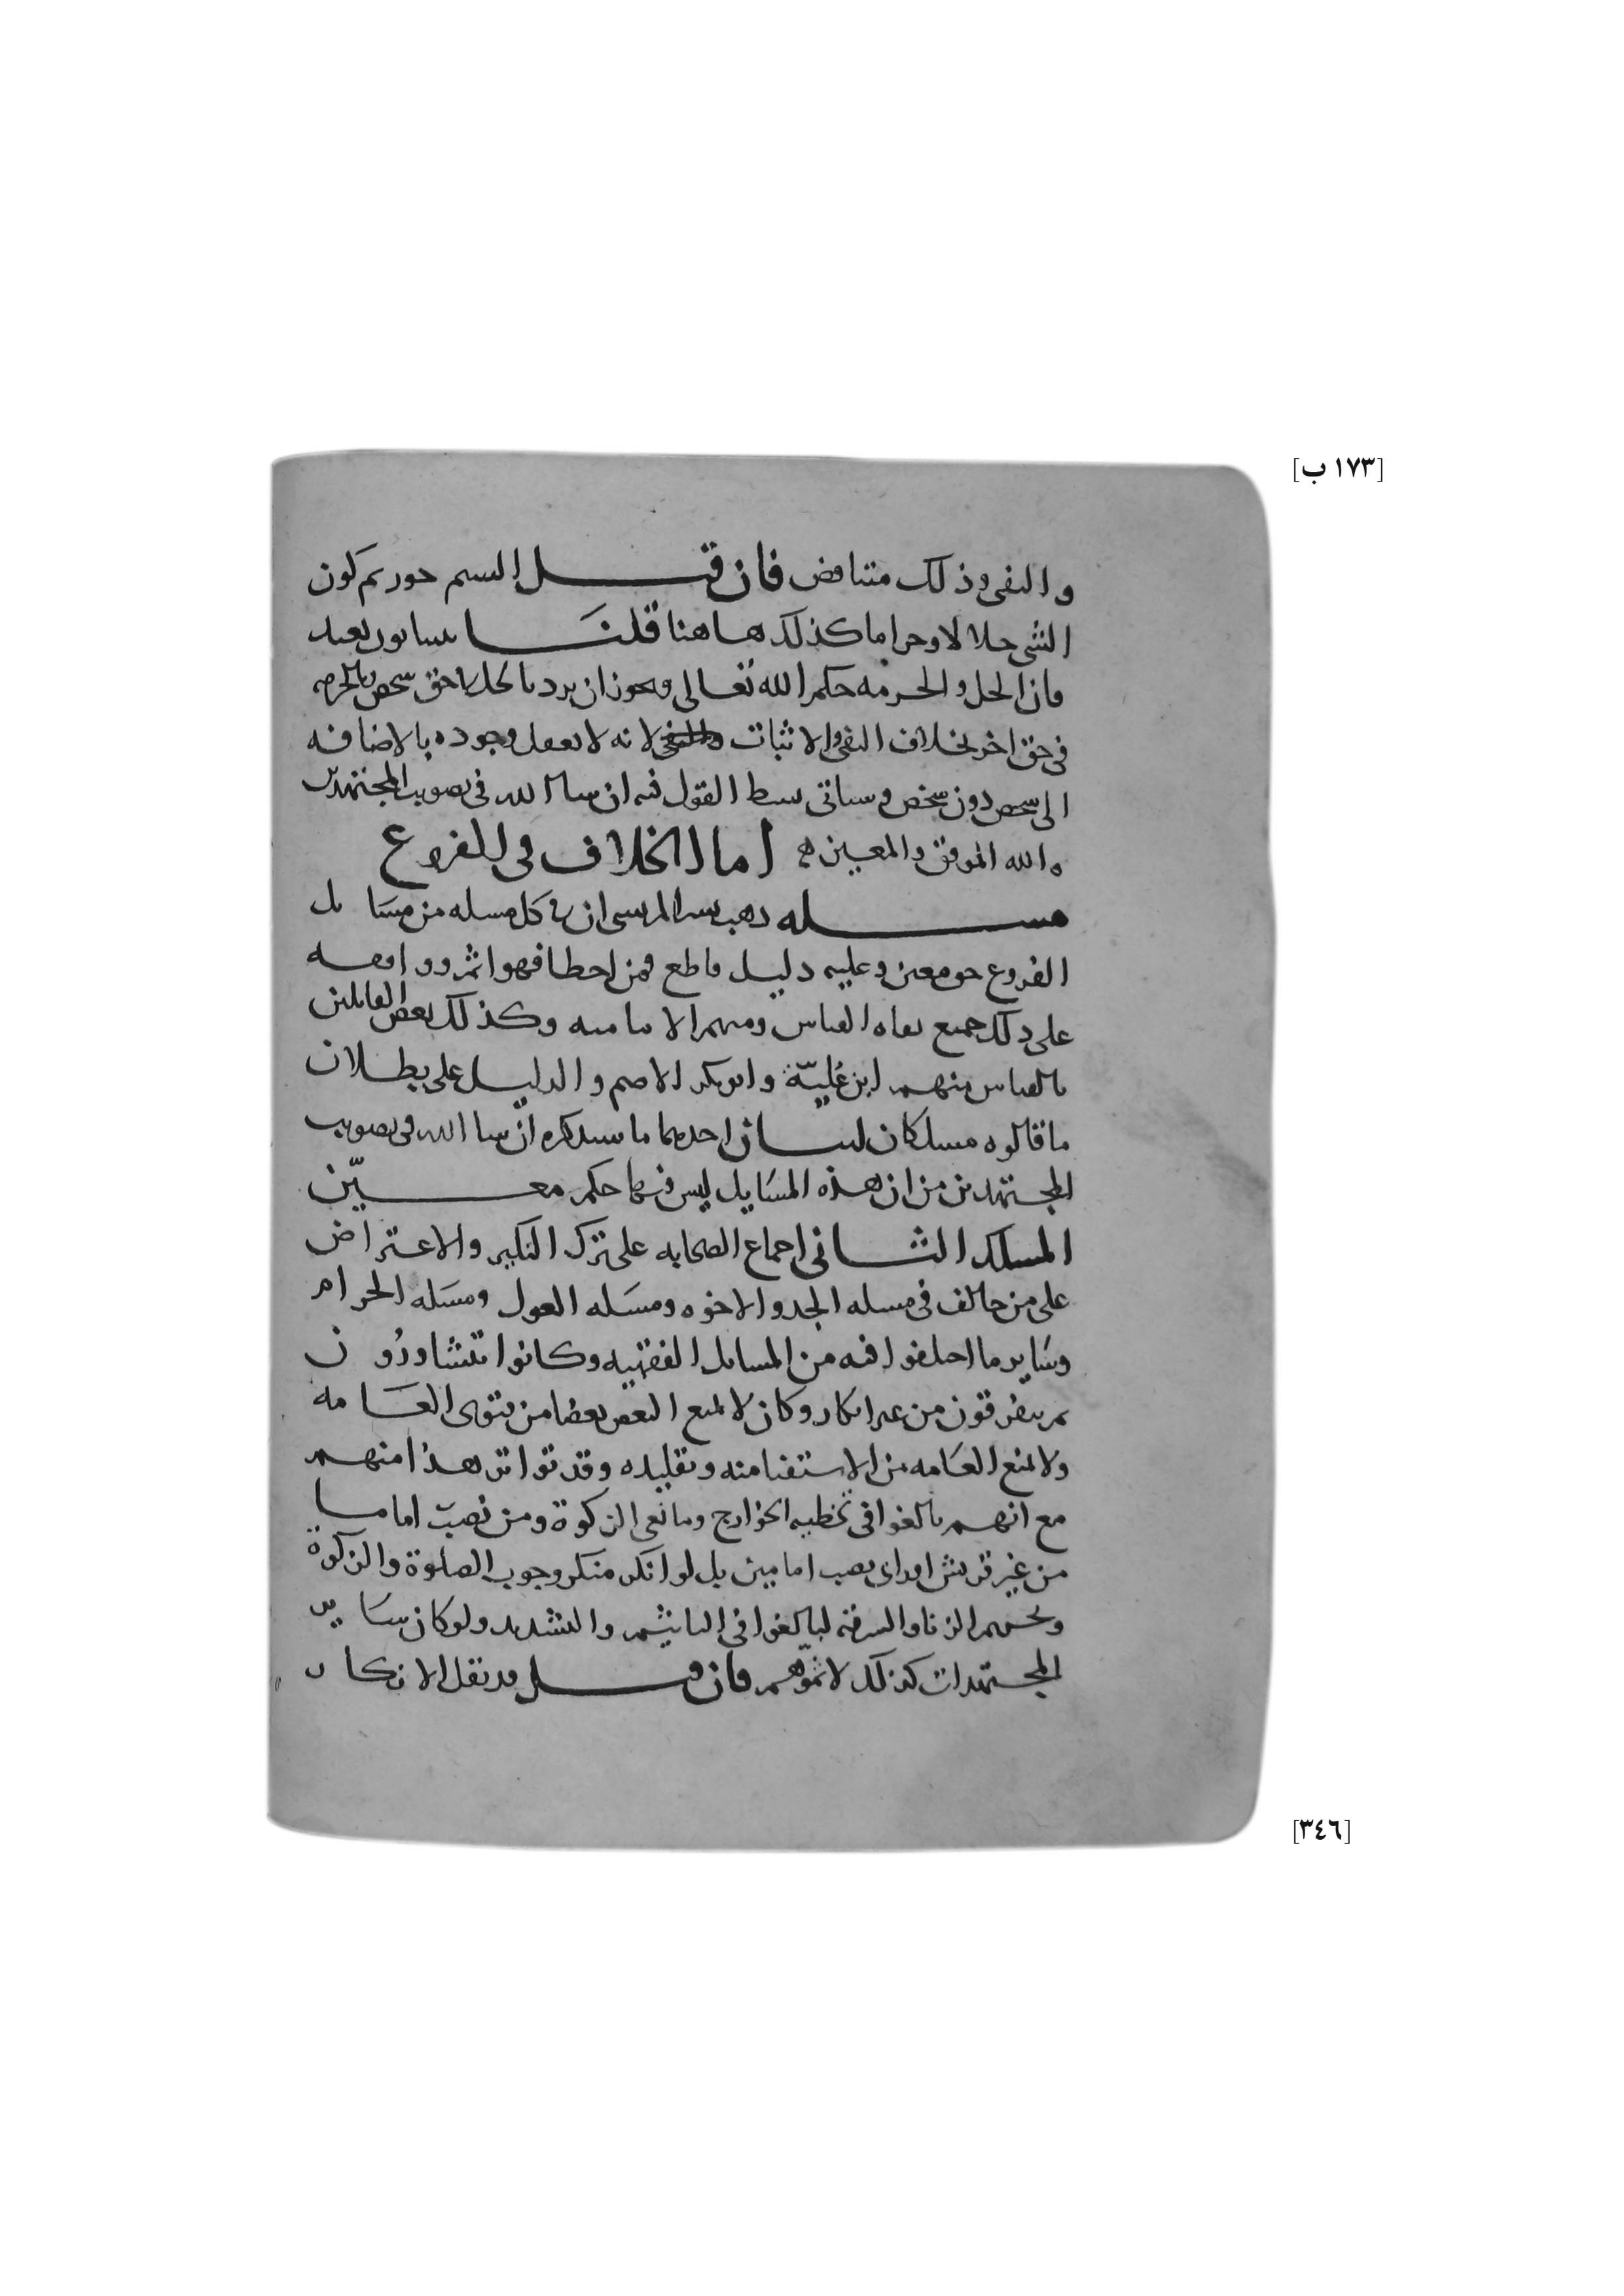 [١٧٣ ب]
والنفى وذلك متناقض فان قيل الستم جورتم كون
الشى حلالا وحراما كذلك هاهنا قلنا بعيد
فان الحل والحرمه حكم الله تعالى ويجوز ان يرد بالحل فى حق شخص وبالحرمه
فى حق اخر بخلاف النفى والاثبات لانه لا يعقل وجوده بالاضافه
الى شخص دون شخص وسياتى بسط القول فيه ان شا الله فى تصويب المجتهدين
والله الموفق والمعين اما الخلاف فى الفروع
مسله ذهب بشر المريسى ان فى كل مسله من مسايل
الفروع حق معين وعليه دليل قاطع فمن اخطا فهو اثم ووافقه
على ذلك جميع نفاه القياس ومنهم الاماميه وكذلك بعض القايلين
بالقياس منهم ابن عُليّة وابو بكر الاصم والدليل على بطلان
ما قالوه مسلكان احدهما ما سنذكره ان شا الله فى تصويب
المجتهدين من ان هذه المسايل ليس فيها حكم معيّن
المسلك الثانى اجماع الصحابه على ترك النكير والاعتراض
على من خالف فى مسله الجد والاخوه ومسله العول ومسله الحرام
وساير ما اختلفوا فيه من المسايل الفقهيه وكانوا يتشاورُون
ثم يتفرقون من غير انكار وكان لا يمنع البعض بعضا من فتوى العامه
ولا يمنع العامه من الاستفتا منه وتقليده وقد تواتر هذا منهم
مع انهم بالغوا فى تخطيه الخوارج ومانعى الزكوة ومن نصب اماما
من غير قريش او راى نصب امامين بل لو انكر منكر وجوب الصلوة والزكوة
وتحريم الزنا والسرقه لبالغوا فى التاثيم والتشديد ولو كان ساير
المجتهدات كذلك لاثموهم فان قيل قد نقل الانكار
[٣٤٦]